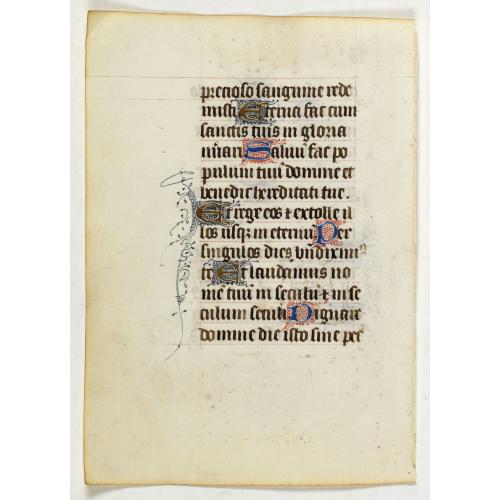 precioso sanguine rede
misti Eterna fac cum
sanctis tuis in gloria
nūari Saluū fac po
pulum tuū domine et
benedic hereditati tue.
Et rege eos ⁊ extolle il
los usqʒ in eternū Per
singulos dies bndicimꝰ
te Et laudamus no
me tuū in seculū ⁊ in se
culum seculi Dignare
domine die isto sine pec